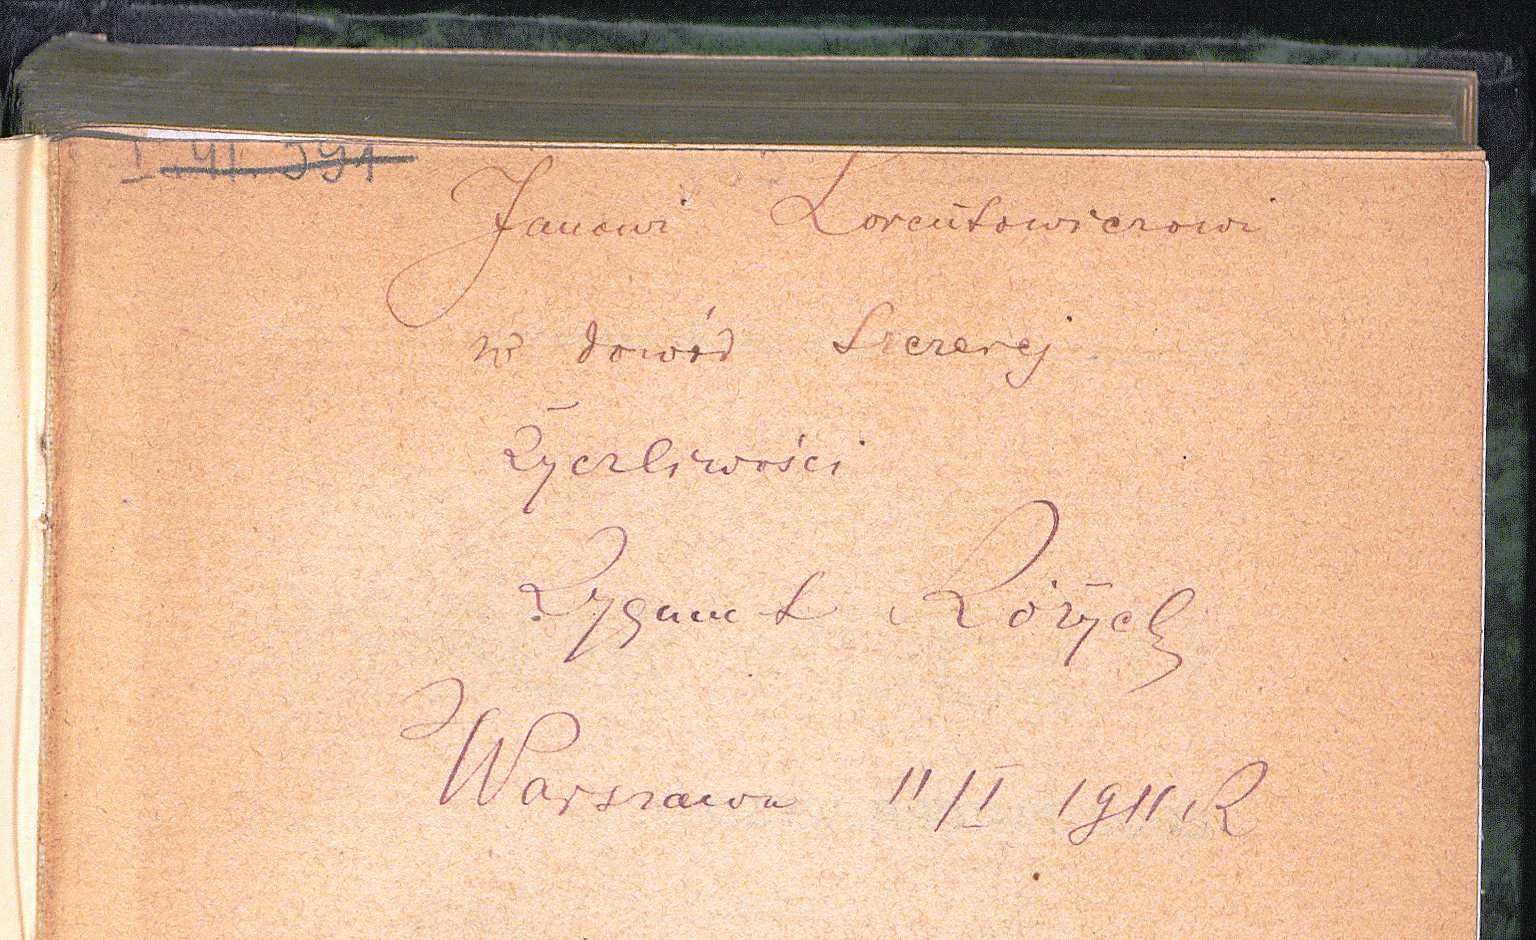 I 41.391
Janowi Lorentowiczowi
w dowód szczerej
życzliwości
Zygmunt Różycki
Warszawa 11/I 1911 R